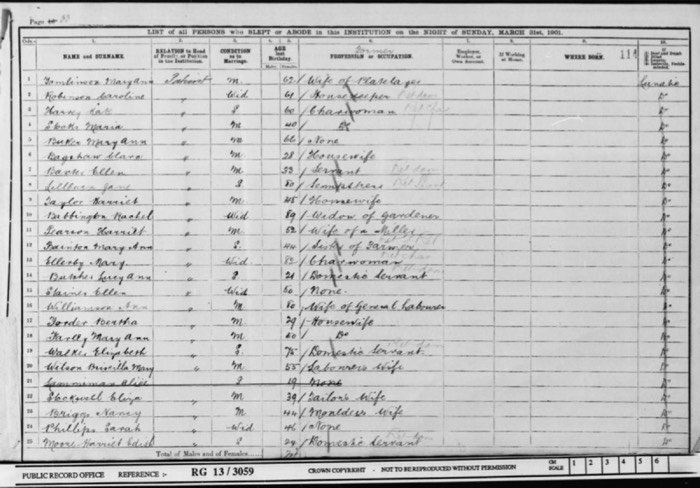 Page 23
LIST of all PERSONS who SLEPT or ABODE in this INSTITUTION on the NIGHT of SUNDAY, MARCH 31st, 1901.
Cols.:- 1. 2. 3. 4. 5. 6. 7. 8. 9. 10.
NAME and SURNAME. RELATION to Head of Family, or Position in the Institution. CONDITION as to Marriage. AGE last Birthday Males Females Former PROFESSION or OCCUPATION. Employer, Worker, or Own Account. If Working at Home. WHERE BORN. 114
1 Tomlinson Mary Ann Patient M 62 Wife of Platelayer Lunatic
2 Robinson Caroline " Wid 61 Housekeeper Do
3 Harvey " S 60 Charwoman Do
4 Maria " M 40 Do Do
5 Mary Ann " M 66 None Do
6 Bagshaw Clara " M 28 Housewife Do
7 Ellen " M 33 Servant Do
8 Jane " S 80 Sempstress Do
9 Taylor Harriet " M 45 Housewife Do
10 Babbington Rachel " Wid 89 Widow of Gardener Do
11 Pearson Harriet " M 52 Wife of a Miller Do
12 Mary Ann " S 44 Sister of Farmer Do
13 Ellerby Mary " Wid 82 Charwoman Do
14 Butcher Lucy Ann " S 21 Domestic Servant Do
15 Ellen " Wid 60 None. Do
16 Williamson Ann " M 60 Wife of General Labourer Do
17 Forder Bertha " M 29 Housewife Do
18 Mary Ann " M 50 Do Do
19 Walker Elizabeth " S 75 Domestic Servant Do
20 Wilson Priscilla Mary " M 55 Labourers Wife Do
21 Alice S 19 None
22 Stockwell Eliza " M 39 Tailors Wife Do
23 Briggs Nancy " M 44 Moulders Wife Do
24 Phillips Sarah " Wid 46 None Do
25 Moore Harriet Edith " S 24 Domestic Servant Do
Total of Males and of Females...
PUBLIC RECORD OFFICE REFERENCE :- RG 13/3059 CROWN COPYRIGHT - NOT TO BE REPRODUCED WITHOUT PERMISSION CM SCALE 1 2 3 4 5 6